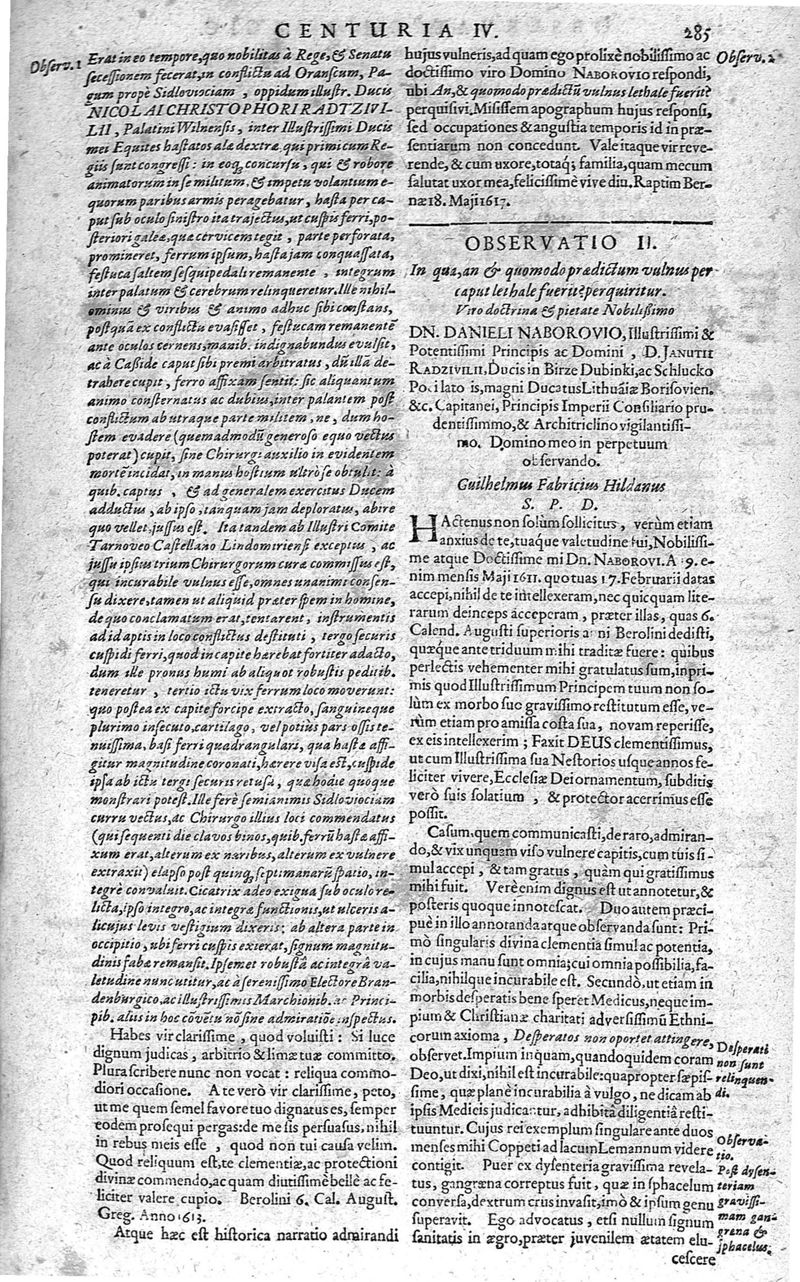 CENTURIA IV. 285
Observ. 1
Erat in eo tempore, quo nobilitas à Rege, & Senatu
secessionem fecerat, in conflictu ad Oranscum, Pa-
gum propè Sidlovociam, oppidum illustr. Ducis
NICOLAI CHRISTOPHORI RADTZIVI-
LII, Palatini Wilnensis, inter Illustrissimi Ducis
mei Equites hastatos alæ dextræ, qui primi cum Re-
giis sunt congressi: in eoq; concursu, qui & robore
animatorum in se militum, & impetu volantium e-
quorum paribus armis peragebatur, hasta per ca-
put sub oculo sinistro ita trajectus, ut cuspis ferri, po-
steriori galeæ, quæ cervicem tegit, parte perforata,
promineret, ferrum ipsum, hasta jam conquassata,
festuca saltem sesquipedali remanente, integrum
inter palatum & cerebrum relinqueretur. Ille nihil-
ominus & viribus & animo adhuc sibi constans,
postquã ex conflictu evasisset, festucam remanentẽ
ante oculos cernens, manib. indignabundus evulsit,
ac à Casside caput sibi premi arbitratus, dũ illã de-
trahere cupit, ferro affixam sentit: sic aliquantum
animo consternatus ac dubius, inter palantem post
conflictum ab utraque parte militem, ne, dum ho-
stem evadere (quemadmodũ generoso equo vectus
poterat) cupit, sine Chirurgi auxilio in evidentem
mortẽ incidat, in manus hostium ultrò se obtulit: à
quib. captus, & ad generalem exercitus Ducem
adductus, ab ipso, tanquam jam deploratus, abire
quo vellet, jussus est. Ita tandem ab Illustri Comite
Tarnoveo Castellano Lindomiriensi exceptus, ac
jussu ipsius trium Chirurgorum curæ commissus est,
qui incurabile vulnus esse, omnes unanimi consen-
su dixere, tamen ut aliquid præter spem in homine,
de quo conclamatum erat, tentarent, instrumentis
ad id aptis in loco conflictus destituti, tergo securis
cuspidi ferri, quod in capite hærebat fortiter adacto,
dum ille pronus humi ab aliquot robustis peditib.
teneretur, tertio ictu vix ferrum loco moverunt:
quo postea ex capite forcipe extracto, sanguineque
plurimo insecuto, cartilago, vel potius pars ossis te-
nuissima, basi ferri quadrangulari, qua hastæ affi-
gitur magnitudine coronati, hærere visa est, cuspide
ipsa ab ictu tergi securis retusa, quæ hodie quoque
monstrari potest. Ille ferè semianimis Sidlovociam
curru vectus, ac Chirurgo illius loci commendatus
(qui sequenti die clavos binos, quib. ferrũ hastæ affi-
xum erat, alterum ex naribus, alterum ex vulnere
extraxit) elapso post quinq; septimanarũ spatio, in-
tegrè convaluit. Cicatrix adeo exigua sub oculo re-
licta, ipso integro, ac integræ functionis, ut ulceris a-
licujus levis vestigium dixeris: ab altera parte in
occipitio, ubi ferri cuspis exierat, signum magnitu-
dinis fabæ remansit. Ipsemet robustâ ac integrâ va-
letudine nunc utitur, ac à serenissimo Electore Bran-
denburgico, ac illustrissimis Marchionib. ac Princi-
pib. aliis in hoc cõvẽtu nõ sine admiratiõe inspectus.
Habes vir clarissime, quod voluisti: Si luce
dignum judicas, arbitrio & limæ tuæ committo.
Plura scribere nunc non vocat: reliqua commo-
diori occasione. A te verò vir clarissime, peto,
ut me quem semel favore tuo dignatus es, semper
eodem prosequi pergas: de me sis persuasus, nihil
in rebus meis esse, quod non tui causa velim.
Quod reliquum est, te clementiæ, ac protectioni
divinæ commendo, ac quam diutissimè bellè ac fe-
liciter valere cupio. Berolini 6. Cal. August.
Greg. Anno 1613.
Atque hæc est historica narratio admirandi
hujus vulneris, ad quam ego prolixè nobilissimo ac
doctissimo viro Domino NABOROVIO respondi,
ubi An, & quomodo prædictũ vulnus lethale fuerit?
perquisivi. Misissem apographum hujus responsi,
sed occupationes & angustia temporis id in præ-
sentiarum non concedunt. Vale itaque vir reve-
rende, & cum uxore, totaq; familia, quam mecum
salutat uxor mea, felicissimè vive diu. Raptim Ber-
næ 18. Maji 1617.
Observ. 2
OBSERVATIO II.
In qua, an & quomodo prædictum vulnus per
caput lethale fuerit? perquiritur.
Viro doctrina & pietate Nobilissimo
DN. DANIELI NABOROVIO, Illustrissimi &
Potentissimi Principis ac Domini, D. JANUTII
RADZIVILII, Ducis in Birze Dubinki, ac Schlucko
magni Ducatus Lithuãiæ Borisovien.
&c. Capitanei, Principis Imperii Consiliario pru-
dentissimmo, & Architriclino vigilantissi-
mo. Domino meo in perpetuum
observando.
Guilhelmus Fabricius Hildanus
S. P. D.
HActenus non solùm sollicitus, verùm etiam
anxius de te, tuaque valetudine fui, Nobilissi-
me atque Doctissime mi Dn. NABOROVI. A 9. e-
nim mensis Maji 1611. quo tuas 17. Februarii datas
accepi, nihil de te intellexeram, nec quicquam lite-
rarum deinceps acceperam, præter illas, quas 6.
Calend. Augusti superioris anni Berolini dedisti,
quæque ante triduum mihi traditæ fuere: quibus
perlectis vehementer mihi gratulatus sum, inpri-
mis quod Illustrissimum Principem tuum non so-
lùm ex morbo suo gravissimo restitutum esse, ve-
rùm etiam pro amissa costa sua, novam reperisse,
ex eis intellexerim; Faxit DEUS clementissimus,
ut cum Illustrissima sua Nestorios usque annos fe-
liciter vivere, Ecclesiæ Dei ornamentum, subditis
verò suis solatium, & protector acerrimus esse
possit.
Casum, quem communicasti, de raro, admiran-
do, & vix unquam viso vulnere capitis, cum tuis si-
mul accepi, & tam gratus, quàm qui gratissimus
mihi fuit. Verè enim dignus est ut annotetur, &
posteris quoque innotescat. Duo autem præci-
puè in illo annotanda atque observanda sunt: Pri-
mò singularis divina clementia simul ac potentia,
in cujus manu sunt omnia; cui omnia possibilia, fa-
cilia, nihilque incurabile est. Secundò, ut etiam in
morbis desperatis bene speret Medicus, neque im-
pium & Christianæ charitati adversissimũ Ethni-
corum axioma, Desperatos non oportet attingere,
observet. Impium inquam, quandoquidem coram
Deo, ut dixi, nihil est incurabile: quapropter sæpis-
sime, quæ planè incurabilia à vulgo, ne dicam ab
ipsis Medicis judicantur, adhibitâ diligentiâ resti-
tuuntur. Cujus rei exemplum singulare ante duos
menses mihi Coppeti ad lacum Lemannum videre
contigit. Puer ex dysenteria gravissima revela-
tus, gangræna correptus fuit, quæ in sphacelum
conversa, dextrum crus invasit, imò & ipsum genu
superavit. Ego advocatus, etsi nullum signum
sanitatis in ægro, præter juvenilem ætatem elu-
cescere
Desperati
non sunt
relinquen-
di.
Observa-
tio.
Post dysen-
teriam
gravissi-
mam gan-
græna &
sphacelus.